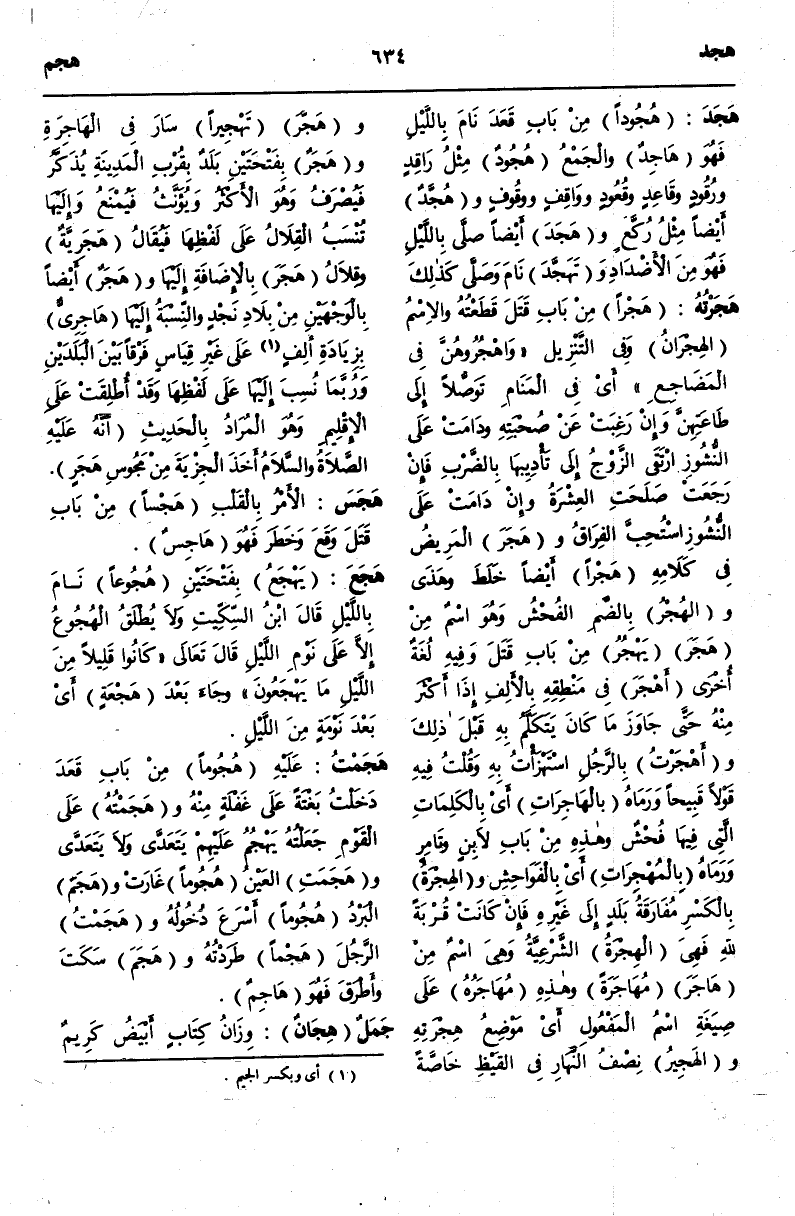 هجد
٦٣٤
هجم
هَجَدَ : ( هُجُوداً ) مِنْ بَابِ قَعَدَ نَامَ بِاللَّيْلِ
فَهُوَ ( هَاجِدٌ ) والْجَمْعُ ( هُجُودٌ ) مِثْلُ رَاقِدٍ
ورُقُودٍ وقَاعِدٍ وقُعُودٍ ووَاقِفٍ ووقُوفٍ و ( هُجَّدٌ )
أَيْضاً مِثْلُ رُكَّعٍ و ( هَجَدَ ) أَيْضاً صلَّى بِاللَّيْلِ
فَهُوَ مِنَ الْأَضْدَادِ وَ ( تَهَجَّدَ ) نَامَ وَصَلَّى كَذٰلِكَ
هَجَرْتُهُ : ( هَجْراً ) مِنْ بَابِ قَتَلَ قَطَعْتُهُ والِاسْمُ
( الهِجْرَانُ ) وَفِى التَّنْزِيلِ « وَاهْجُرُوهُنَّ فِى
الْمَضَاجِعِ » أَىْ فِى الْمَنَامِ تَوَصُّلاً إِلَى
طَاعَتِهِنَّ وَإِنْ رَغِبَتْ عَنْ صُحْبَتِهِ ودَامَتْ عَلَى
النُّشُوزِ ارْتَقَى الزَّوْجُ إِلَى تَأْدِيبِهَا بِالضَّرْبِ فَإِنْ
رَجَعَتْ صَلَحَتِ الْعِشْرَةُ وإِنْ دَامَتْ عَلَى
النُّشُوزِ اسْتُحِبَّ الفِرَاقُ و ( هَجَرَ ) الْمَرِيضُ
فِى كَلَامِهِ ( هَجْراً ) أَيْضاً خَلَطَ وهَذَى
و ( الهُجْرُ ) بِالضَّمِ الفُحْشُ وَهُوَ اسْمٌ مِنْ
( هَجَرَ ) ( يَهْجُرُ ) مِنْ بَابِ قَتَلَ وَفِيهِ لُغَةٌ
أُخْرَى ( أَهْجَرَ ) فِى مَنْطِقِهِ بِالْأَلِفِ إِذَا أَكْثَرَ
مِنْهُ حَتَّى جَاوَزَ مَا كَانَ يَتَكَلَّمُ بِهِ قَبْلَ ذٰلِكَ
و ( أَهْجَرْتُ ) بِالرَّجُلِ اسْتَهْزَأْتُ بِهِ وَقُلْتُ فِيهِ
قَوْلاً قَبِيحاً وَرَمَاهُ ( بِالهَاجِرَاتِ ) أَىْ بِالْكَلِمَاتِ
الَّتِى فِيهَا فُحْشٌ وهٰذِهِ مِنْ بَابِ لَابِنٍ وتَامِرٍ
وَرَمَاهُ ( بِالْمُهْجِرَاتِ ) أَىْ بِالْفَوَاحِشِ و ( الهِجْرَةُ )
بِالْكَسْرِ مُفَارَقَةُ بَلَدٍ إِلَى غَيْرِهِ فَإِنْ كَانَتْ قُرْبَةً
للهِ فَهِىَ ( الْهِجْرَةُ ) الشَّرْعِيَّةُ وَهِىَ اسْمٌ مِنْ
( هَاجَرَ ) ( مُهَاجَرَةً ) وهٰذِهِ ( مُهَاجَرُهُ ) عَلَى
صِيغَةِ اسْمِ الْمَفْعُولِ أَىْ مَوْضِعُ هِجْرَتِهِ
و ( الهَجِيرُ ) نِصْفُ النَّهَارِ فِى القَيْظِ خَاصَّةً
و ( هَجَّرَ ) ( تَهْجِيراً ) سَارَ فِى الْهَاجِرَةِ
و( هَجَرٌ ) بِفَتْحَتَيْنِ بَلَدٌ بِقُرْبِ الْمَدِينَةِ يُذَكَّرُ
فَيُصْرَفُ وَهُوَ الْأَكْثَرُ وَيُؤَنَّثُ فَيُمْنَعُ وَإِلَيْهَا
تُنْسَبُ الْقِلَالُ عَلَى لَفْظِهَا فَيُقَالُ ( هَجَرِيَّةٌ )
وقِلَالُ ( هَجَرَ ) بِالْإِضَافَةِ إِلَيْهَا و ( هَجَرُ ) أَيْضاً
بِالْوَجْهَيْنِ مِنْ بِلَادِ نَجْدٍ والنِّسْبَةُ إِلَيْهَا ( هَاجِرِىٌّ )
بِزِيَادَةِ أَلِفٍ (١) عَلَى غَيْرِ قِيَاسٍ فَرْقاً بَيْنَ الْبَلَدَيْنِ
وَرُبَّمَا نُسِبَ إِلَيْهَا عَلَى لَفْظِهَا وَقَدْ أُطْلِقَتْ عَلَى
الْإِقْلِيمِ وَهُوَ الْمُرَادُ بِالْحَدِيثِ ( أَنَّهُ عَلَيْهِ
الصَّلَاةُ والسَّلَامُ أَخَذَ الْجِزْيَةَ مِنْ مَجُوسِ هَجَرٍ ).
هَجَسَ : الْأَمْرُ بِالْقَلْبِ ( هَجْساً ) مِنْ بَابِ
قَتَلَ وَقَعَ وَخَطَرَ فَهُوَ ( هَاجِسٌ ) .
هَجَعَ : ( يَهْجَعُ ) بِفَتْحَتَيْنِ ( هُجُوعاً ) نَـامَ
بِاللَّيْلِ قَالَ ابْنُ السِّكِّيتِ وَلَا يُطْلَقُ الْهُجُوعُ
إِلَّا عَلَى نَوْمِ اللَّيْلِ قَالَ تَعَالَى « كَانُوا قَلِيلاً مِنَ
اللَّيْلِ مَا يَهْجَعُونَ » وجَاءَ بَعْدَ ( هَجْعَةٍ ) أَىْ
بَعْدَ نَوْمَةٍ مِنَ اللَّيْلِ .
هَجَمْتُ : عَلَيْهِ ( هُجُوماً ) مِنْ بَابِ قَعَدَ
دَخَلْتُ بَغْتَةً عَلَى غَفْلَةٍ مِنْهُ و ( هَجَمْتُهُ ) عَلَى
الْقَوْمِ جَعَلْتُهُ يَهْجُمُ عَلَيْهِمْ يَتَعَدَّى وَلَا يَتَعَدَّى
و ( هَجَمَتِ ) العَيْنُ ( هُجُوماً ) غَارَتْ و ( هَجَمَ )
الْبَرْدُ ( هُجُوماً ) أَسْرَعَ دُخُولُهُ و ( هَجَمْتُ )
الرَّجُلَ ( هَجْماً ) طَرَدْتُهُ و ( هَجَمَ ) سَكَتَ
وأَطْرَقَ فَهُوَ ( هَاجِمٌ ) .
جَمَلٌ ( هِجَانٌ ) : وِزَانُ كِتَابٍ أَبْيَضُ كَرِيمٌ
( ١ ) أى وبكسر الجيم .